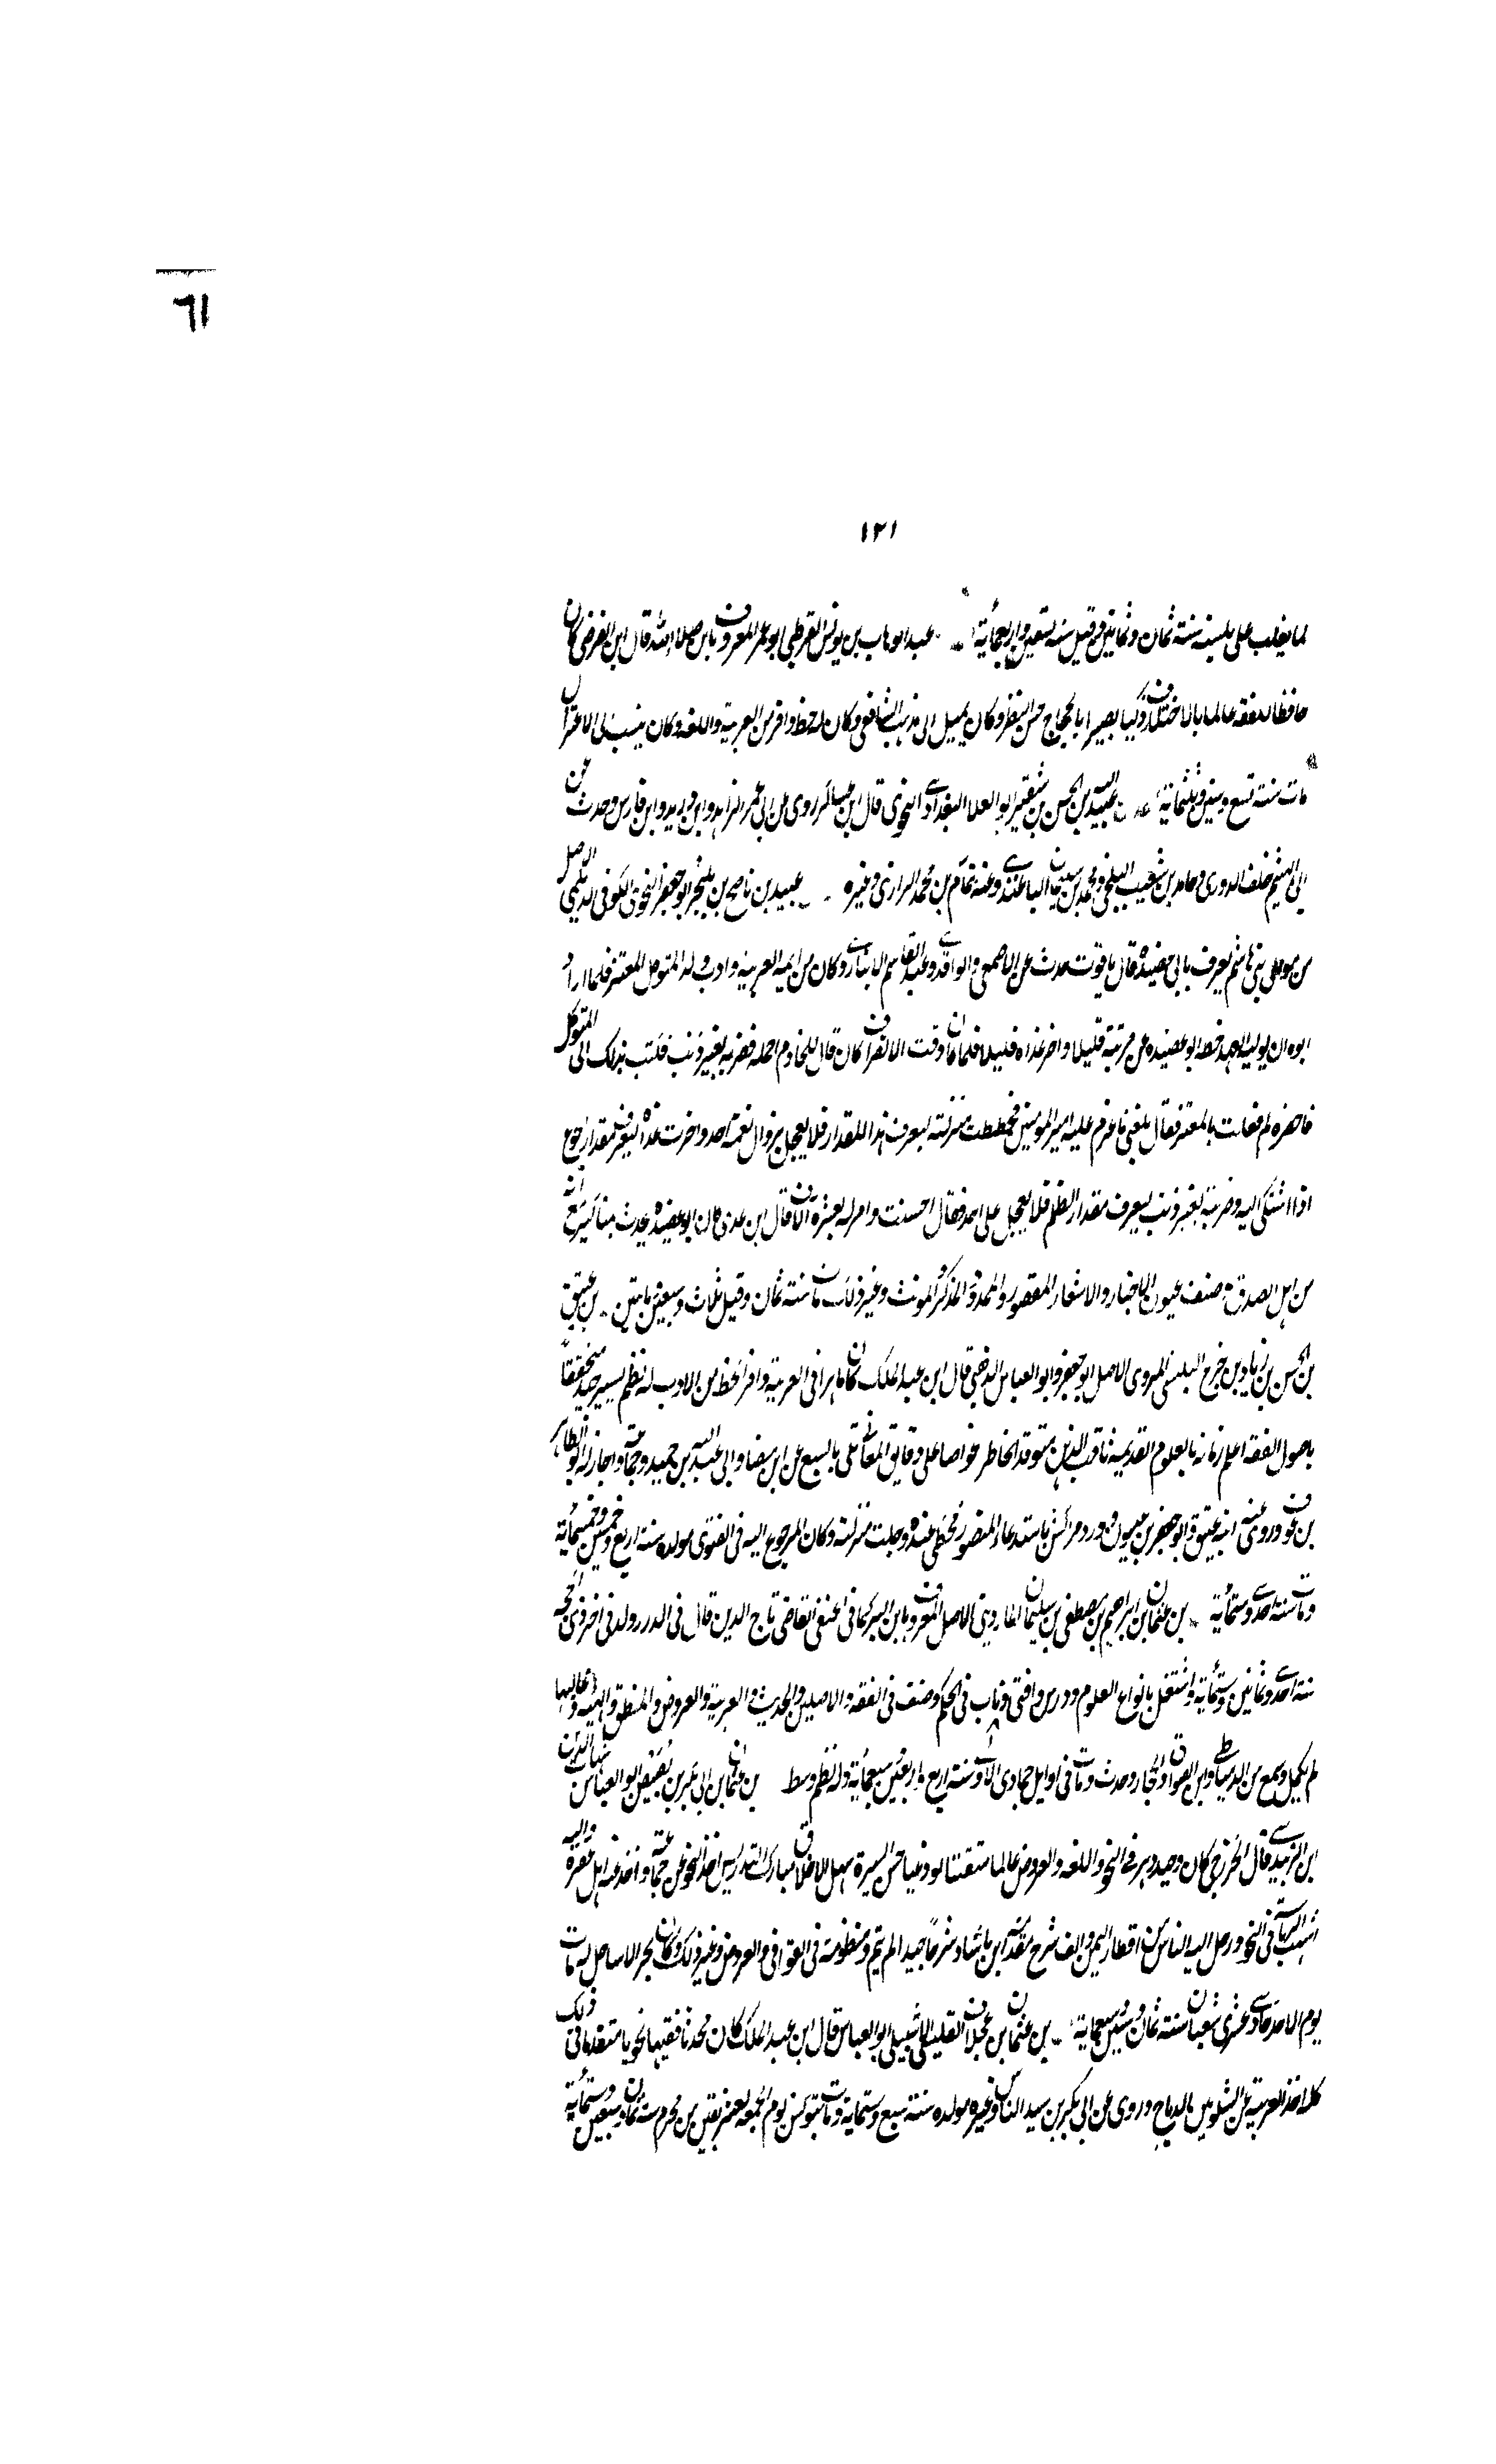 ٦١
١٢١
لما يغلب على بلنسية سنة ثمان وثمانين وقيل سنة تسعين واربعمائة عبد الوهاب بن يونس القرطبي ابو عمر المعروف بابن صلا الله قال ابن الفرضي كان
حافظا للفقه عالما بالاختلاف ذكيا بصيرا بالحجاج حسن النظر وكان يميل الى مذهب الشافعي وكان له حظ وافر من العربية واللغة وكان ينسب الى الاعتزال
مات سنة تسع وستين وثلثمائة عبيد الله بن الحسن بن شقير ابو العلا البغدادي النحوي قال ابن عساكر روى عن ابي عمر الزاهد وابن دريد وابن فارس وحدث عن
ابي الهيثم خلف الدوري وحامد بن شعيب البلخي ومحمد بن سليمان الباغندي وعنه تمام بن محمد الرازي وغيره عبيد بن ناصح بن بلنجر ابو جعفر النحوي الكوفي الديلمي الاصل
من موالي بني هاشم يعرف بابي عصيدة قال ياقوت حدث عن الاصمعي والواقدي وعنه القاسم الانباري وكان من ايمة العربية وادب ولد المتوكل المعتز فلما اراد
ابوه ان يوليه العهد حطه ابو عصيده عن مرتبته قليلا واخر غذاه قليلا فلما كان وقت الانصراف كان قال للخادم احمله فضربه بغير ذنب فكتب بذلك الى المتوكل
فاحضره لم فعلت بالمعتز فقال بلغني ما عزم عليه امير المومنين فحططت منزلته ليعرف هذا المقدار فلا يعجل بزوال نعمة احد واخرت غذاه ليعرف مقدار الجوع
اذا اشتكى اليه وضربته بغير ذنب ليعرف مقدار الظلم فلا يعجل على احد فقال احسنت وامر له بعشرة آلاف قال ابن عدي كان ابو عصيده يحدث بمناكير مع انه
من اهل الصدق صنف عيون الاخبار والاشعار المقصور والممدود المذكر والمونث وغير ذلك مات سنة ثمان وقيل ثلاث وسبعين مايتين بن عتيق
بن الحسن بن زياد بن جرج البلنسي المروي الاصل ابو جعفر وابو العباس الذهبي قال ابن عبد الملك كان ماهرا في العربية وافر الحظ من الادب له نظم يسير جيد متحققا
باصول الفقه اعلم زمانه بالعلوم القديمة ثاقب الذهن متوقد الخاطر غواصا على دقايق المعاني تلى بالسبع عن ابن مضا وابي عبد الله بن حميد وجماعة واجاز له ابو الطاهر
بن عوف وروى عنه ابنه عتيق وابو جعفر بن ميمون ورد مراكش باستدعاء المنصور فحظي عنده وجلت منزلته وكان المرجوع اليه في الفتوى مولده سنة اربع وخمسين وخمسمائة
ومات سنة احدى وستمائة بن عثمان بن ابراهيم بن مصطفى بن سليمان المارديني الاصل المعروف بابن التركماني الحنفي القاضي تاج الدين قال في الدرر ولد في اخر ذي الحجة
سنة احدى وثمانين وستمائة واشتغل بانواع العلوم ودرس وافتى وناب في الحكم وصنف في الفقه والاصلين والحديث والعربية والعروض والمنطق والهيئة وغالبها
لم يكمل وسمع من الدمياطي وابن الصواف والحجار وحدث ومات في اوايل جمادى الاولى سنة اربع واربعين سبعمائة وله نظم وسط بن عثمان بن ابي بكر بن بصيص ابو العباس شهاب الدين
ابن الزبيدي قال الخزرجي كان وحيد دهره في النحو واللغة والعروض عالما متقنا لوذعيا حسن السيرة سهل الاخلاق مبارك التدريس اخذ النحو عن جماعة واخذ عنه اهل عصره واليه
انتهت الرياسة في النحو ورحل اليه الناس من اقطار اليمن والف شرح مقدمة ابن بابشاد شرحا جيدا لم يتم ومنظومة في القوافي والعروض وغير ذلك وكان بحرا لا ساحل له مات
يوم الاحد حادي عشري شعبان سنة ثمان وستين وسبعماية بن عثمان بن عجلان القيسي الاشبيلي ابو العباس قال ابن عبد الملك كان محدثا فقيها نحويا متقدما في ذلك
كله اخذ العربية عن الشلوبين الدباج وروى عن ابي بكر بن سيد الناس وغيره مولده سنة سبع وستماية ومات بتونس يوم الجمعة لعشر بقين من محرم سنة ثمان وسبعين وستمائة